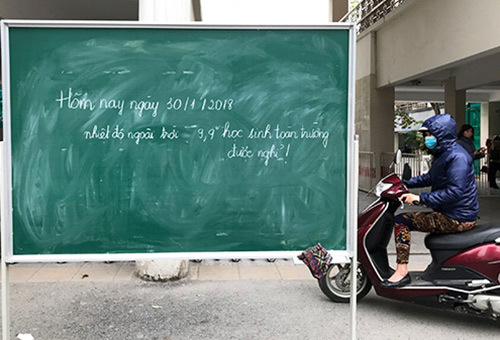 Hôm nay ngày 30/1/2018
nhiệt độ ngoài trời 9,9° học sinh toàn trường
được nghỉ!